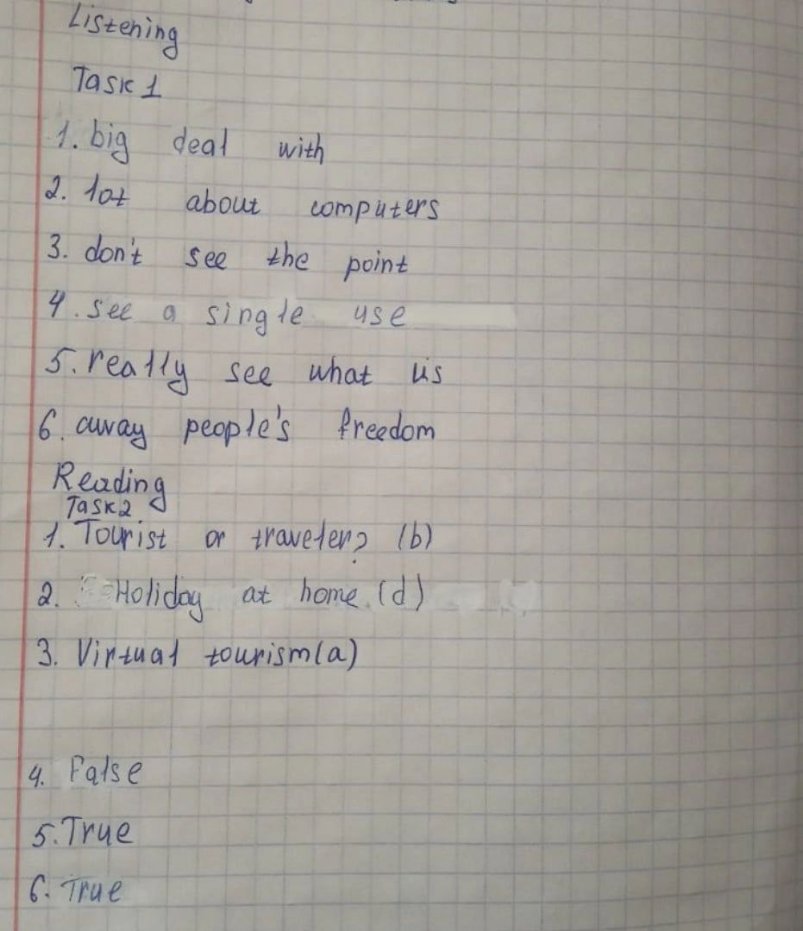 Listening
Task 1
1. big deal with
2. lot about computers
3. don't see the point
4. see a single use
5. really see what us
6. away people's freedom
Reading
Task2
1. Tourist or traveler? (b)
2. Holiday at home. (d)
3. Virtual tourism(a)
4. False
5. True
6. True